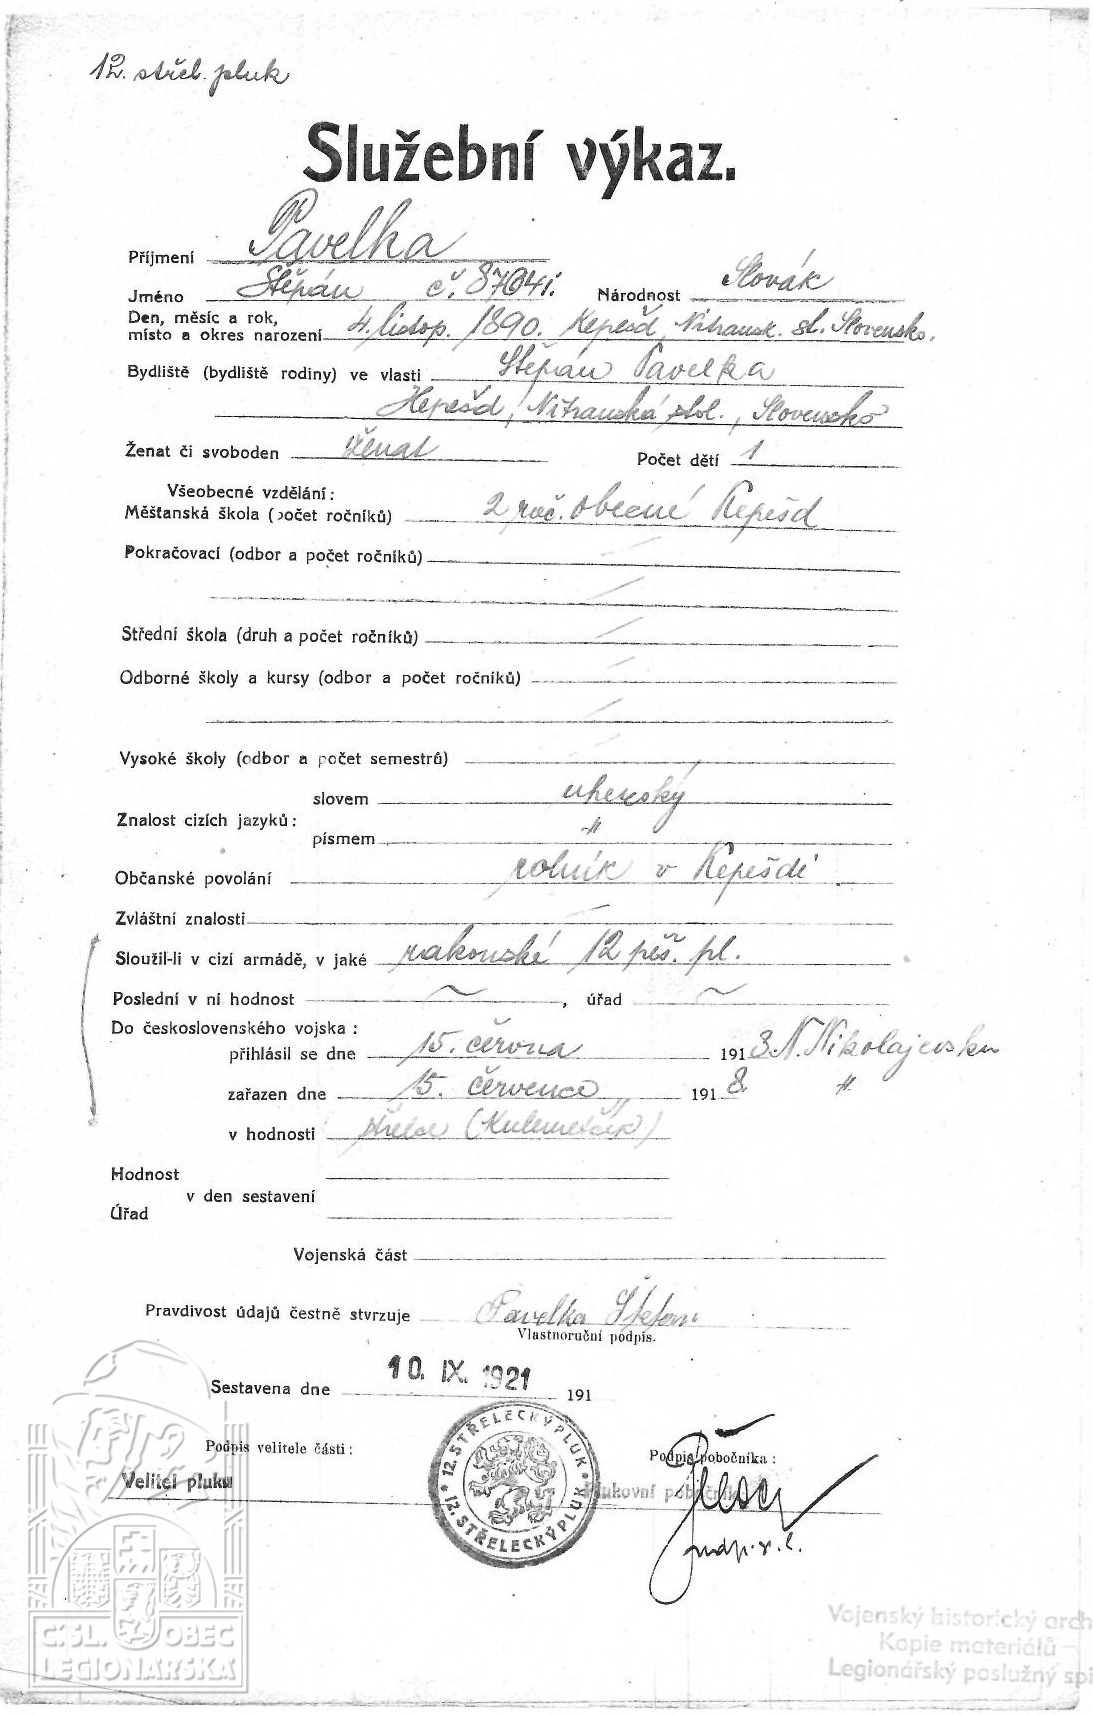 12. střel. pluk
Služební výkaz.
Příjmení Pavelka
Jméno Štěpán č. 87041. Národnost Slovák
Den, měsíc a rok,
místo a okres narození 4. listop. 1890. Kepešd, Nitransk. st. Slovensko.
Bydliště (bydliště rodiny) ve vlasti Štěpán Pavelka
Kepešd, Nitranská stol., Slovensko
Ženat či svoboden ženat Počet dětí 1
Všeobecné vzdělání:
Měšťanská škola (počet ročníků) 2 roč. obecné Kepešd
Pokračovací (odbor a počet ročníků)
Střední škola (druh a počet ročníků)
Odborné školy a kursy (odbor a počet ročníků)
Vysoké školy (odbor a počet semestrů)
slovem uherský
Znalost cizích jazyků:
písmem "
Občanské povolání rolník v Kepešdi
Zvláštní znalosti
Sloužil-li v cizí armádě, v jaké rakouské 12 pěš. pl.
Poslední v ní hodnost , úřad
Do československého vojska:
přihlásil se dne 15. června 191 N. Nikolajevsku
zařazen dne 15. července 1918. "
v hodnosti střelce (Kulometčík)
Hodnost
v den sestavení
Úřad
Vojenská část
Pravdivost údajů čestně stvrzuje Pavelka Štefan
Vlastnoruční podpis.
Sestavena dne 10. IX. 1921 191
Podpis velitele části: Podpis pobočníka:
Velitel pluku Plukovní pobočník
12. STŘELECKÝ PLUK * 12. STŘELECKÝ PLUK *
Č. SL. OBEC
LEGIONÁŘSKÁ
Vojenský historický arch
Kopie materiálů
Legionářský poslužný spi